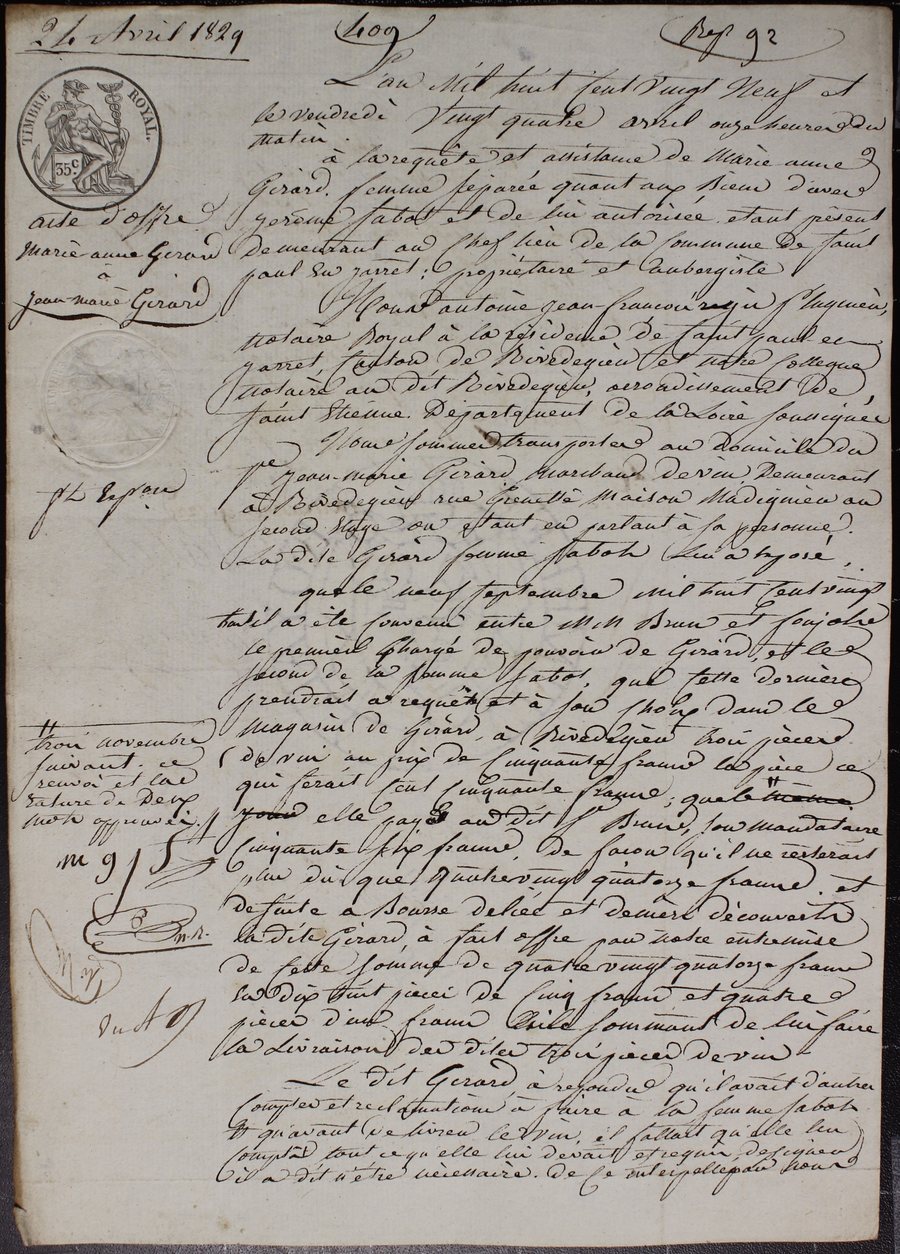 24 Avril 1829
409
Rep 92
TIMBRE ROYAL.
35 c.
acte d'offre
Marie anne Girard
à
jean-marie Girard
L'an Mil huit Cent vingt Neuf et
le vendredi Vingt quatre avril onze heures du
matin.
à la requête et assistance de Marie anne
Girard, femme séparée quant aux Biens d'avec
jerôme Sabot et de lui autorisée etant présent
demeurant au Chef lieu de la Commune de saint
paul En jarret; propriétaire et aubergiste
Nous antoine jean-françois
Notaire Royal à la résidence de saint paul en
jarret, Canton de Rivedegier, et notre Collegue
notaire au dit Rivedegier, arrondissement de
saint Etienne, Département de la Loire soussignés
Nous sommes transportés au domicile du
Sr jean-marie Girard marchand de vin Demeurant
à Rivedegier rue maison Madignier au
second Etage où etant en parlant à sa personne.
La dite Girard femme Sabot Lui a exposé,
que le neuf septembre mil huit Cent vingt
huit il a été convenu entre MM Brun et
le premier Chargé de pouvoir de Girard, et le
second de la femme Sabot, que cette dernière
prendrait a requête et à son Choix dans le
magasin de Girard, à Rivedegier trois pièces
de vin au prix de Cinquante francs la pièce ce
qui ferait Cent Cinquante francs; que le même
jour elle paya au dit Sr Brun, son mandataire
Cinquante six francs, de façon qu'il ne resterait
plus dû que quatre vingt quatorze francs, et
de suite a Bourse deliée et deniers découverts
la dite Girard, à fait offre par notre entremise
de cette somme de quatre vingt quatorze francs
en dix huit pièces de Cinq francs et quatre
pièces d'un franc sommant de lui faire
la Livraison des dites trois pièces de vin
Le dit Girard à repondu qu'il avait d'autres
Comptes et reclamations à faire à la femme Sabot
et qu'avant de livrer le vin, il fallait qu'elle lui
comptat tout ce qu'elle lui devait, et requis de signer
il a dit n'être nécessaire. de Ce interpellé par nous
trois novembre
suivant. ce
renvoi et la
rature de Deux
mots approuvés.
m g